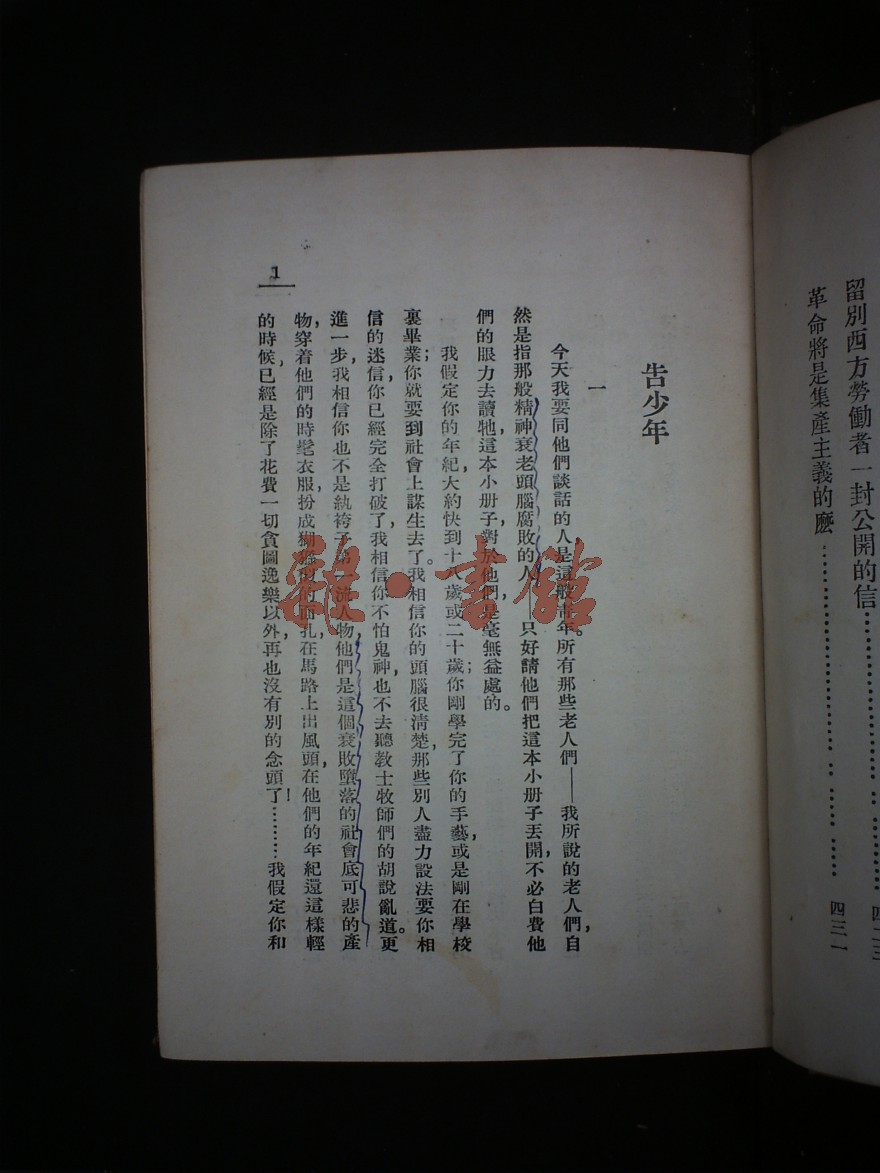 留別西方勞働者一封公開的信……………………四二三
革命將是集產主義的麼……………………四三一
告少年
一
今天我要同他們談話的人是這般青年。所有那些老人們——我所說的老人們，自
然是指那般精神衰老頭腦腐敗的人——只好請他們把這本小册子丟開，不必白費他
們的眼力去讀牠這本小册子，對於他們是毫無益處的。
我假定你的年紀大約快到十八歲或二十歲；你剛學完了你的手藝，或是剛在學校
裏畢業；你就要到社會上謀生去了。我相信你的頭腦很清楚，那些別人盡力設法要你相
信的迷信你已經完全打破了，我相信你不怕鬼神，也不去聽教士牧師們的胡說亂道。更
進一步，我相信你也不是紈袴子弟一流人物，他們是這個衰敗墮落的社會底可悲的產
物，穿着他們的時髦衣服，扮成猢猻似的面孔在馬路上出風頭，在他們的年紀還這樣輕
的時候已經是除了花費一切貪圖逸樂以外，再也沒有別的念頭了！…………我假定你和
1
雜·書館